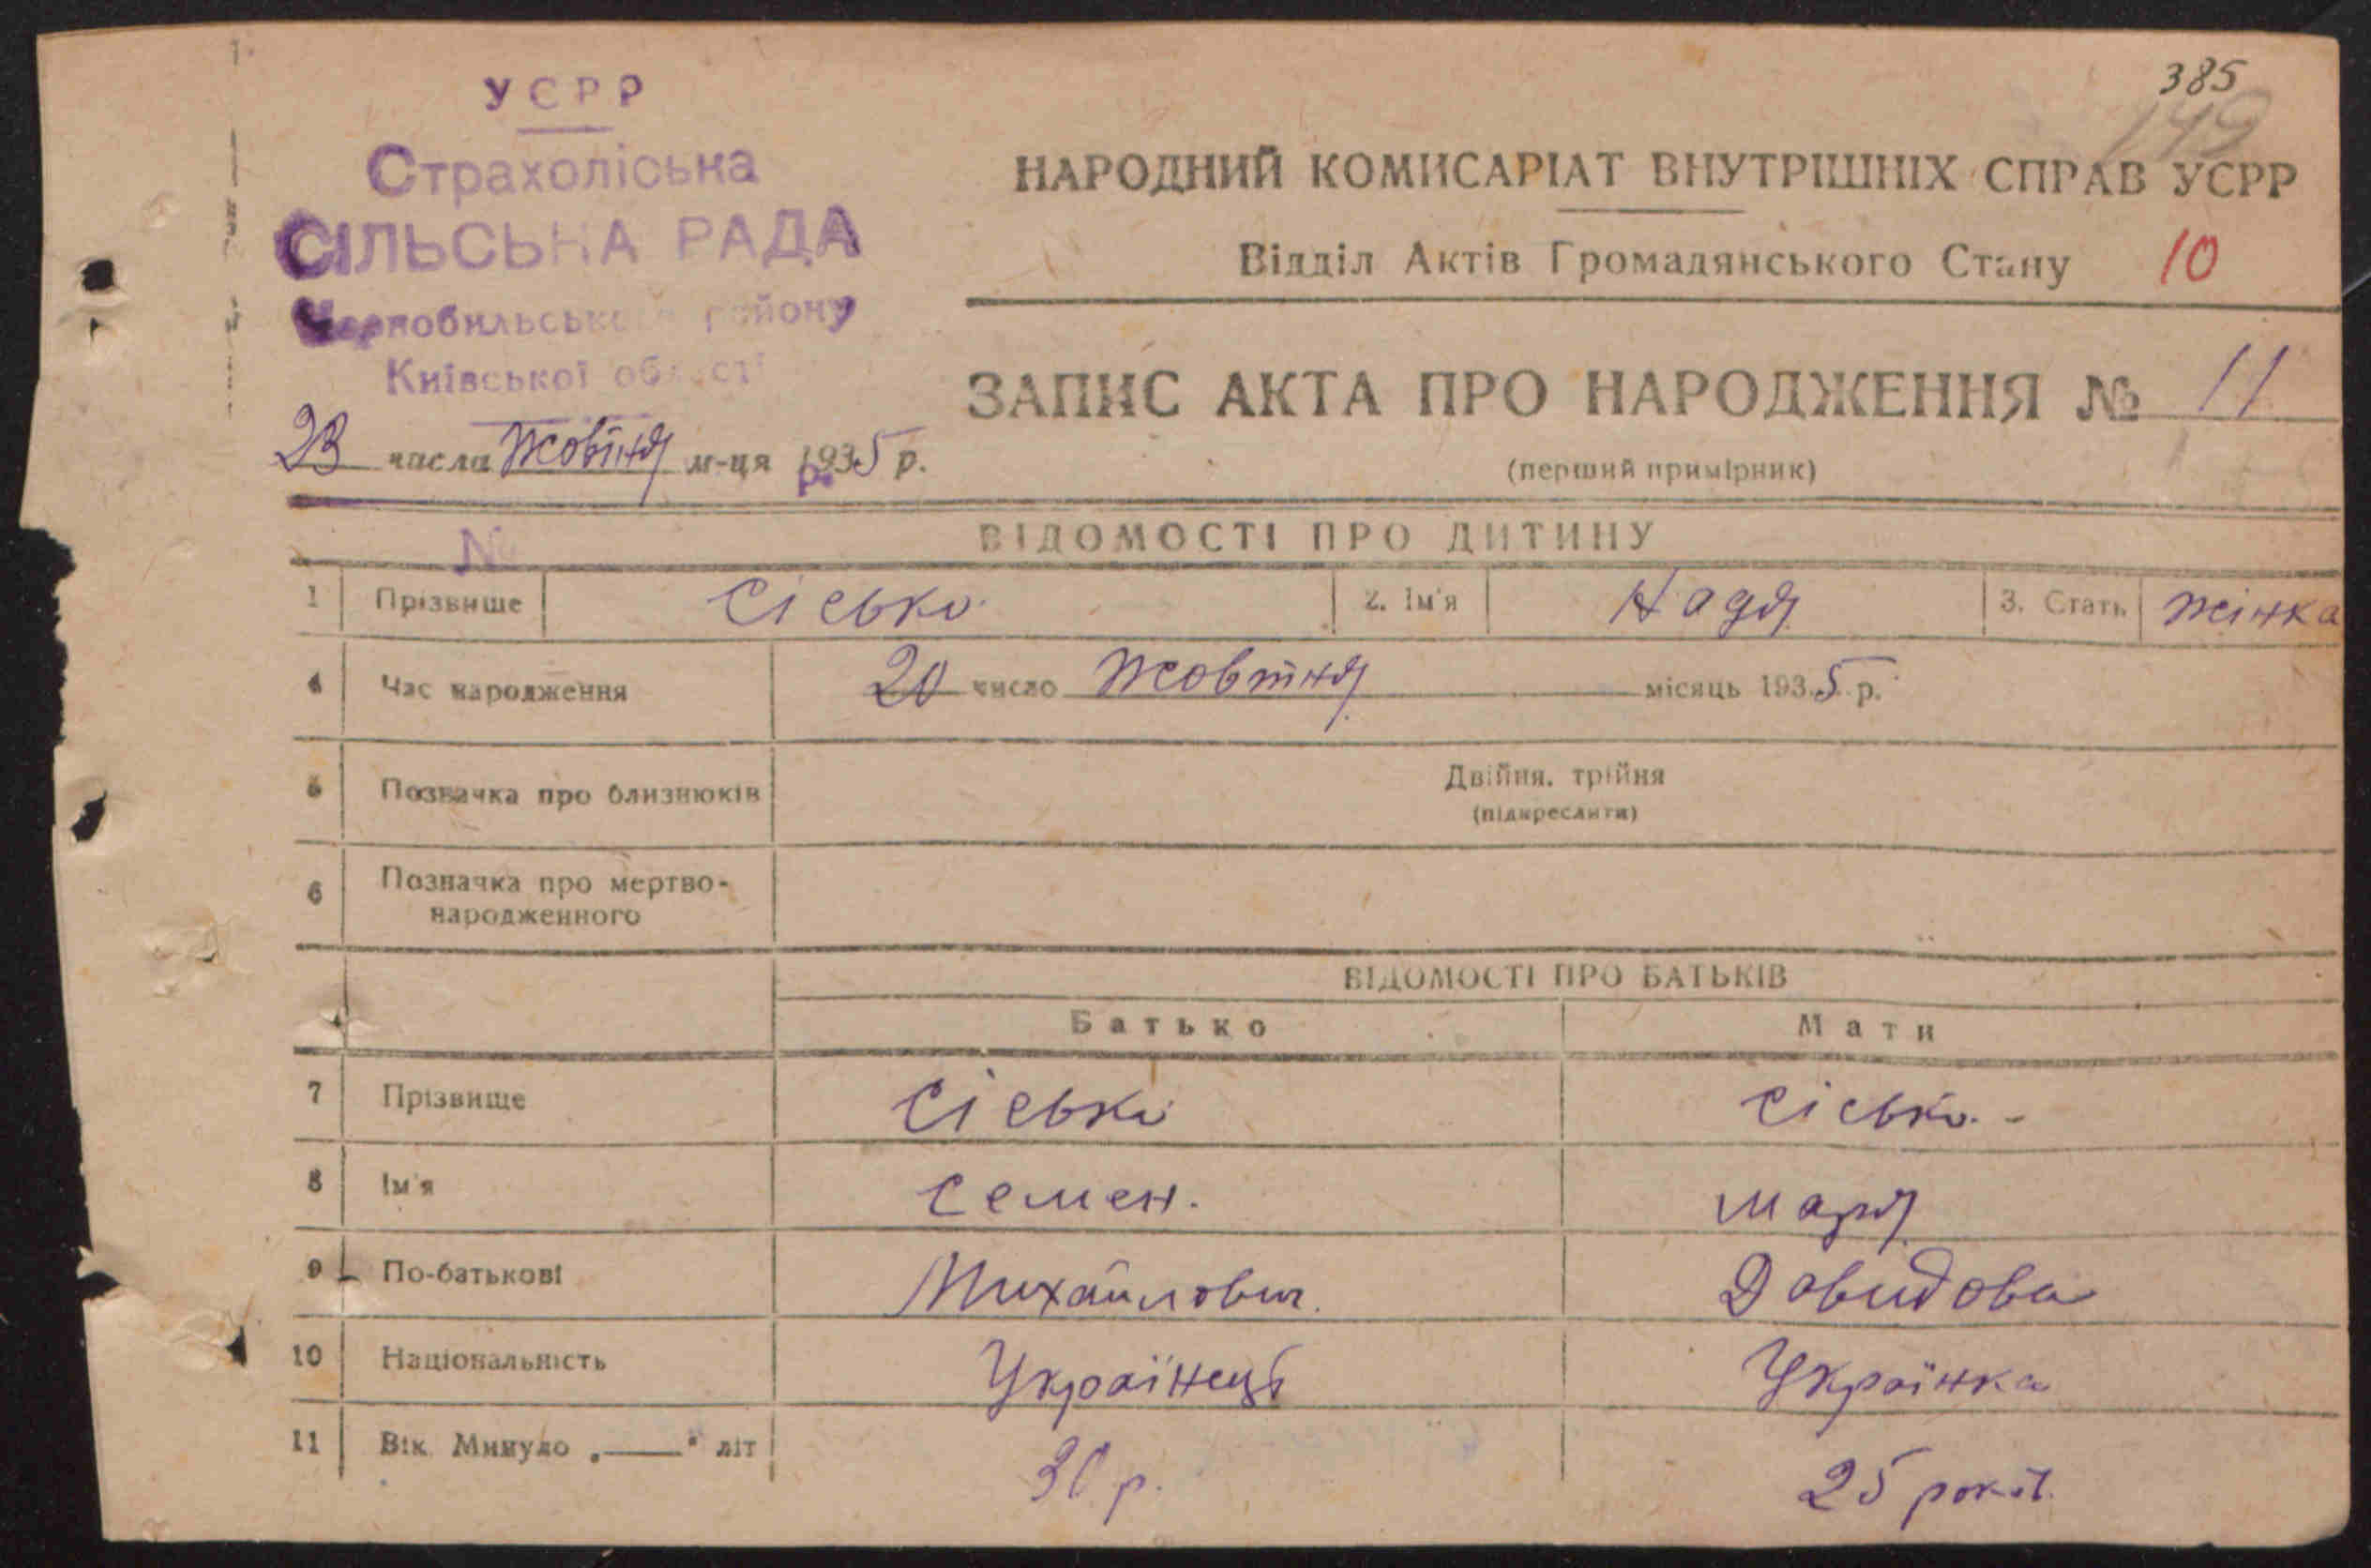 385
149
УСРР
Страхоліська
СІЛЬСЬКА РАДА
Чорнобильського району
Київської області
23 числа Жовтня м-ця 1935 р.
р.
№
НАРОДНИЙ КОМИСАРІАТ ВНУТРІШНІХ СПРАВ УСРР
Відділ Актів Громадянського Стану 10
ЗАПИС АКТА ПРО НАРОДЖЕННЯ № 11
(перший примірник)
ВІДОМОСТІ ПРО ДИТИНУ
1 Прізвище Сісько 2. Ім'я Надя 3. Стать жінка
4 Час народження 20 число Жовтня місяць 1935 р.
5 Позначка про близнюків Двійня, трійня
(підкреслити)
6 Позначка про мертво-
народженного
ВІДОМОСТІ ПРО БАТЬКІВ
Батько Мати
7 Прізвище Сісько Сісько. -
8 Ім'я Семен. Марія
9 По-батькові Михайлович. Довидова
10 Національність Українець Українка
11 Вік Минуло „——" літ р. 25 років.